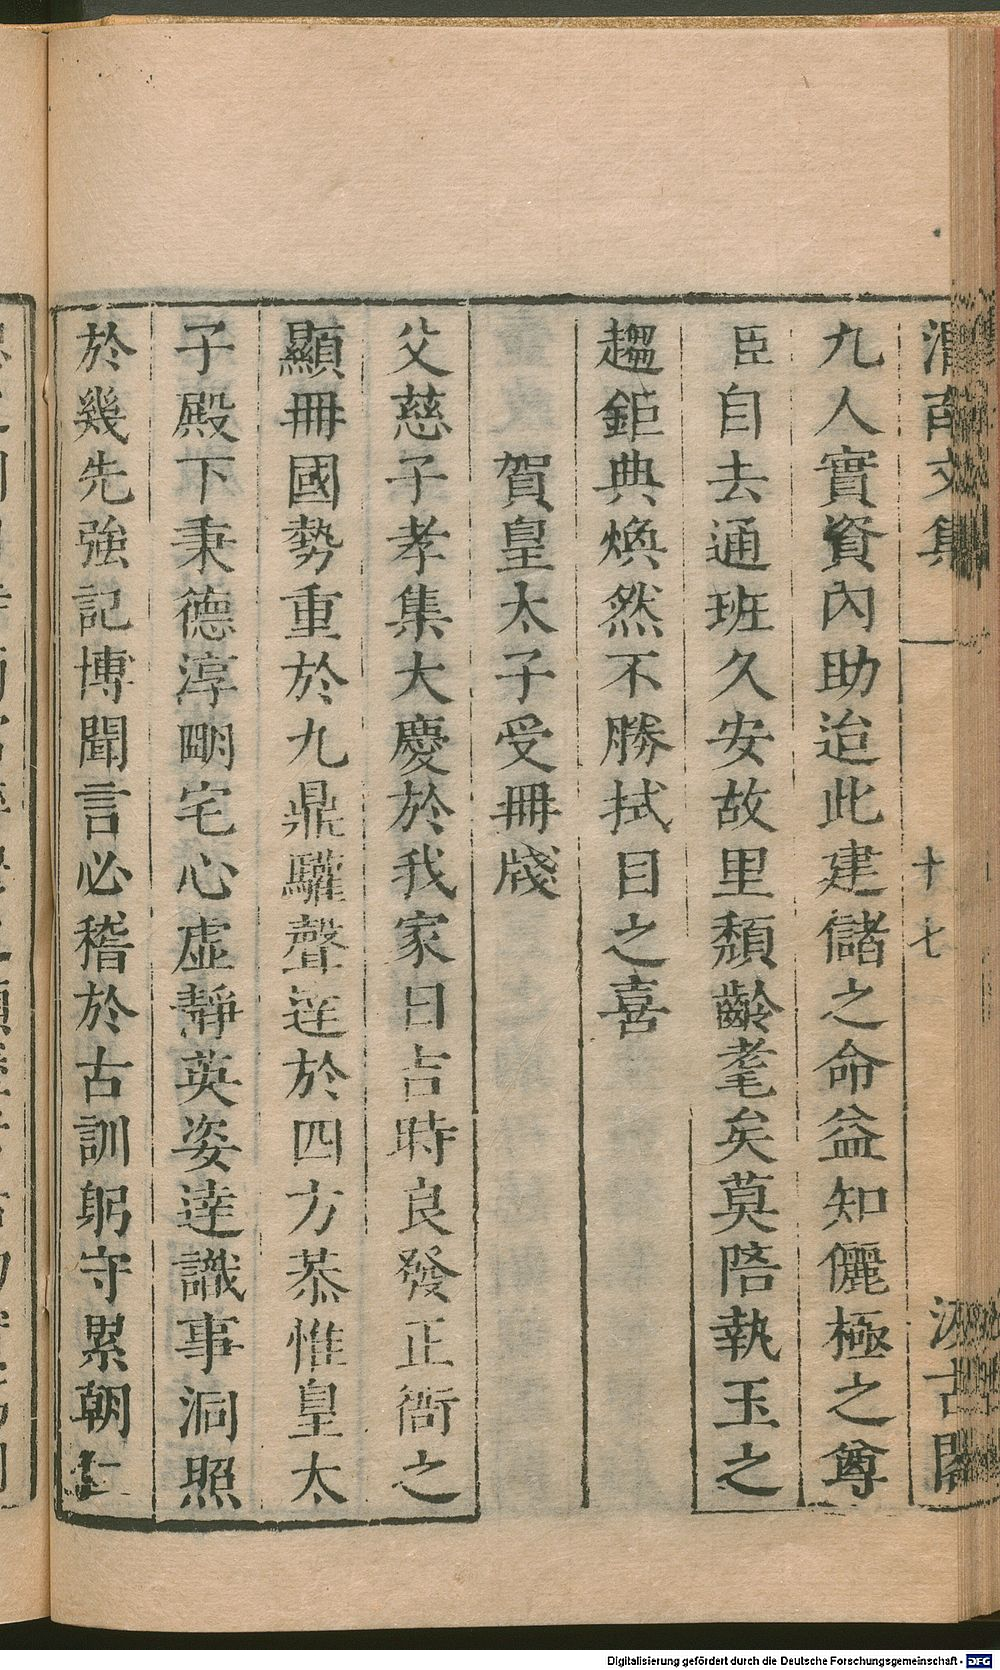 渭南文集
十七
汲古閣
九人實資內助迨此建儲之命益知儷極之尊
臣自去通班久安故里頽齡耄矣莫陪執玉之
趨鉅典煥然不勝拭目之喜
賀皇太子受冊牋
父慈子孝集大慶於我家日吉時良發正衙之
顯冊國勢重於九鼎驩聲達於四方恭惟皇太
子殿下秉德淳明宅心虛靜英姿達識事洞照
於幾先強記博聞言必稽於古訓躬守累朝
Digitalisierung gefördert durch die Deutsche Forschungsgemeinschaft - DFG